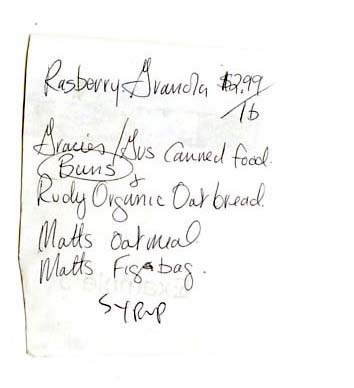 Rasberry Granola $2.99
/lb
Gracies/Gus Canned food.
Buns &
Rudy Organic Oat bread
Matts Oatmeal
Matts Fig bag.
SYRUP